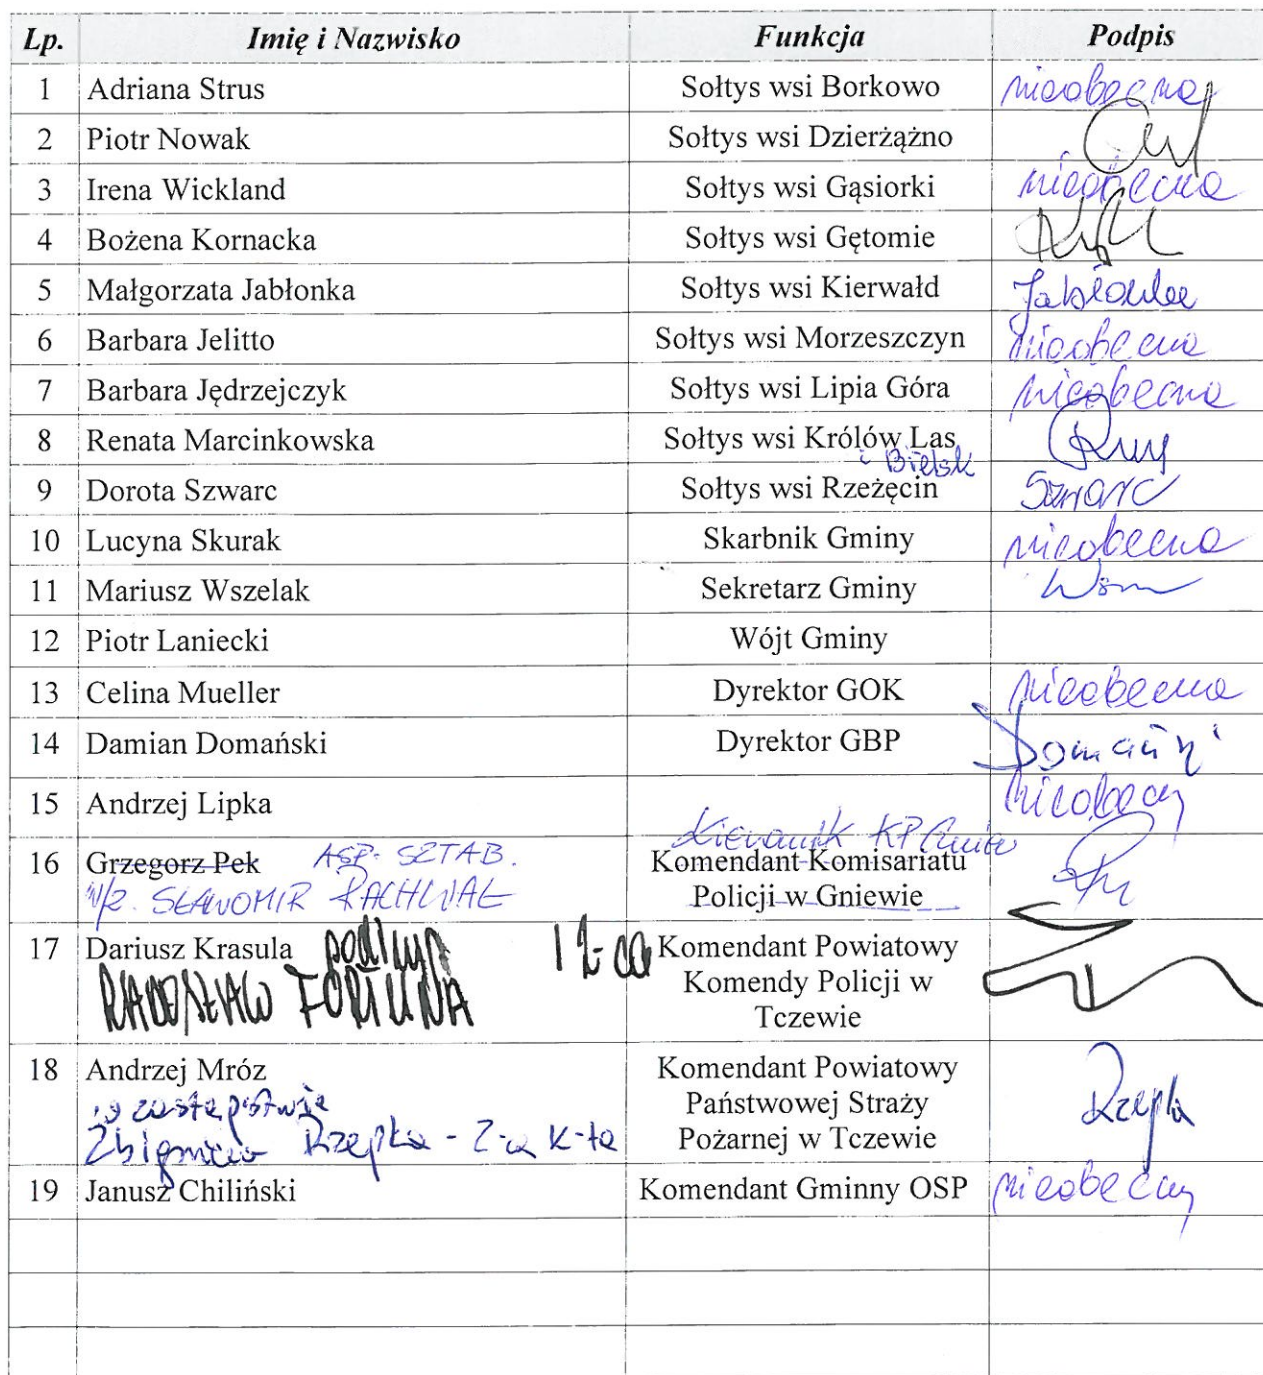 Lp. Imię i Nazwisko Funkcja Podpis
1 Adriana Strus Sołtys wsi Borkowo nieobecna
2 Piotr Nowak Sołtys wsi Dzierżążno
3 Irena Wickland Sołtys wsi Gąsiorki nieobecna
4 Bożena Kornacka Sołtys wsi Gętomie
5 Małgorzata Jabłonka Sołtys wsi Kierwałd Jabłonka
6 Barbara Jelitto Sołtys wsi Morzeszczyn nieobecna
7 Barbara Jędrzejczyk Sołtys wsi Lipia Góra nieobecna
8 Renata Marcinkowska Sołtys wsi Królów Las
i Bielsk
9 Dorota Szwarc Sołtys wsi Rzeżęcin Szwarc
10 Lucyna Skurak Skarbnik Gminy nieobecna
11 Mariusz Wszelak Sekretarz Gminy
12 Piotr Laniecki Wójt Gminy
13 Celina Mueller Dyrektor GOK nieobecna
14 Damian Domański Dyrektor GBP Domański
15 Andrzej Lipka nieobecny
Kierownik KP Gniew
16 Grzegorz Pek ASP. SZTAB. Komendant Komisariatu
w/z. SŁAWOMIR RACHWAŁ Policji w Gniewie
17 Dariusz Krasula Komendant Powiatowy
RADOSŁAW FORTUNA Komendy Policji w
Tczewie
18 Andrzej Mróz Komendant Powiatowy
w zastępstwie Państwowej Straży Rzepka
Zbigniew Rzepka - Z-ca K-ta Pożarnej w Tczewie
19 Janusz Chiliński Komendant Gminny OSP nieobecny